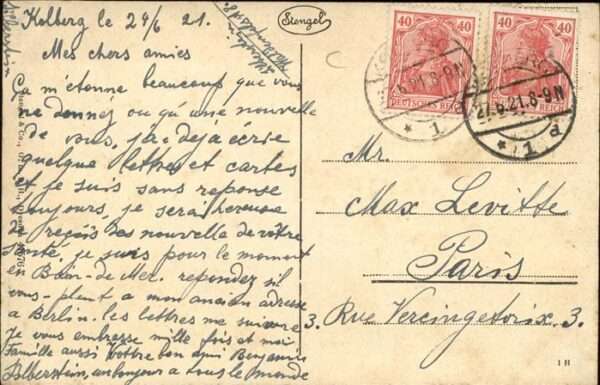 Kolberg le 24/6 21.
Mes chers amies
Ça m'étonne beaucoup que vous
ne donnez ou qu'une nouvelle
de vous, j'ai déjà écrie
quelque lettres et cartes
et je suis sans reponse
toujours, je serai heureuse
de reçois des nouvelle de vôtre
santé, je suis pour le moment
en Bain-de Mer. repondez sil
vous-plait a mon ancien adresse
a Berlin. les lettres me suivre
Je vous embrasse mille fois et moi
Famille aussi Vottre bon ami Benjamin
Silberstein, un bonjour a tous le monde
Stengel
40 40
40 40
DEUTSCHES REICH
REICH
21.8-9N
27.6.21.8-9N
* 1
* 1 d
Mr.
Max Levitte
Paris
3. Rue Vercingetorix 3.
1 H